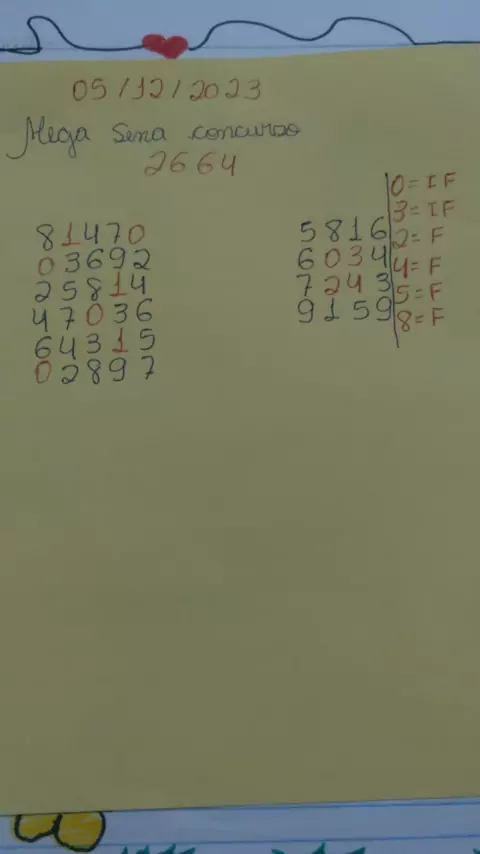 05/12/2023
Mega Sena concurso
2664
81470
03692
25814
47036
64315
02897
5816
6034
7243
9159
0=IF
3=IF
2=F
4=F
5=F
8=F